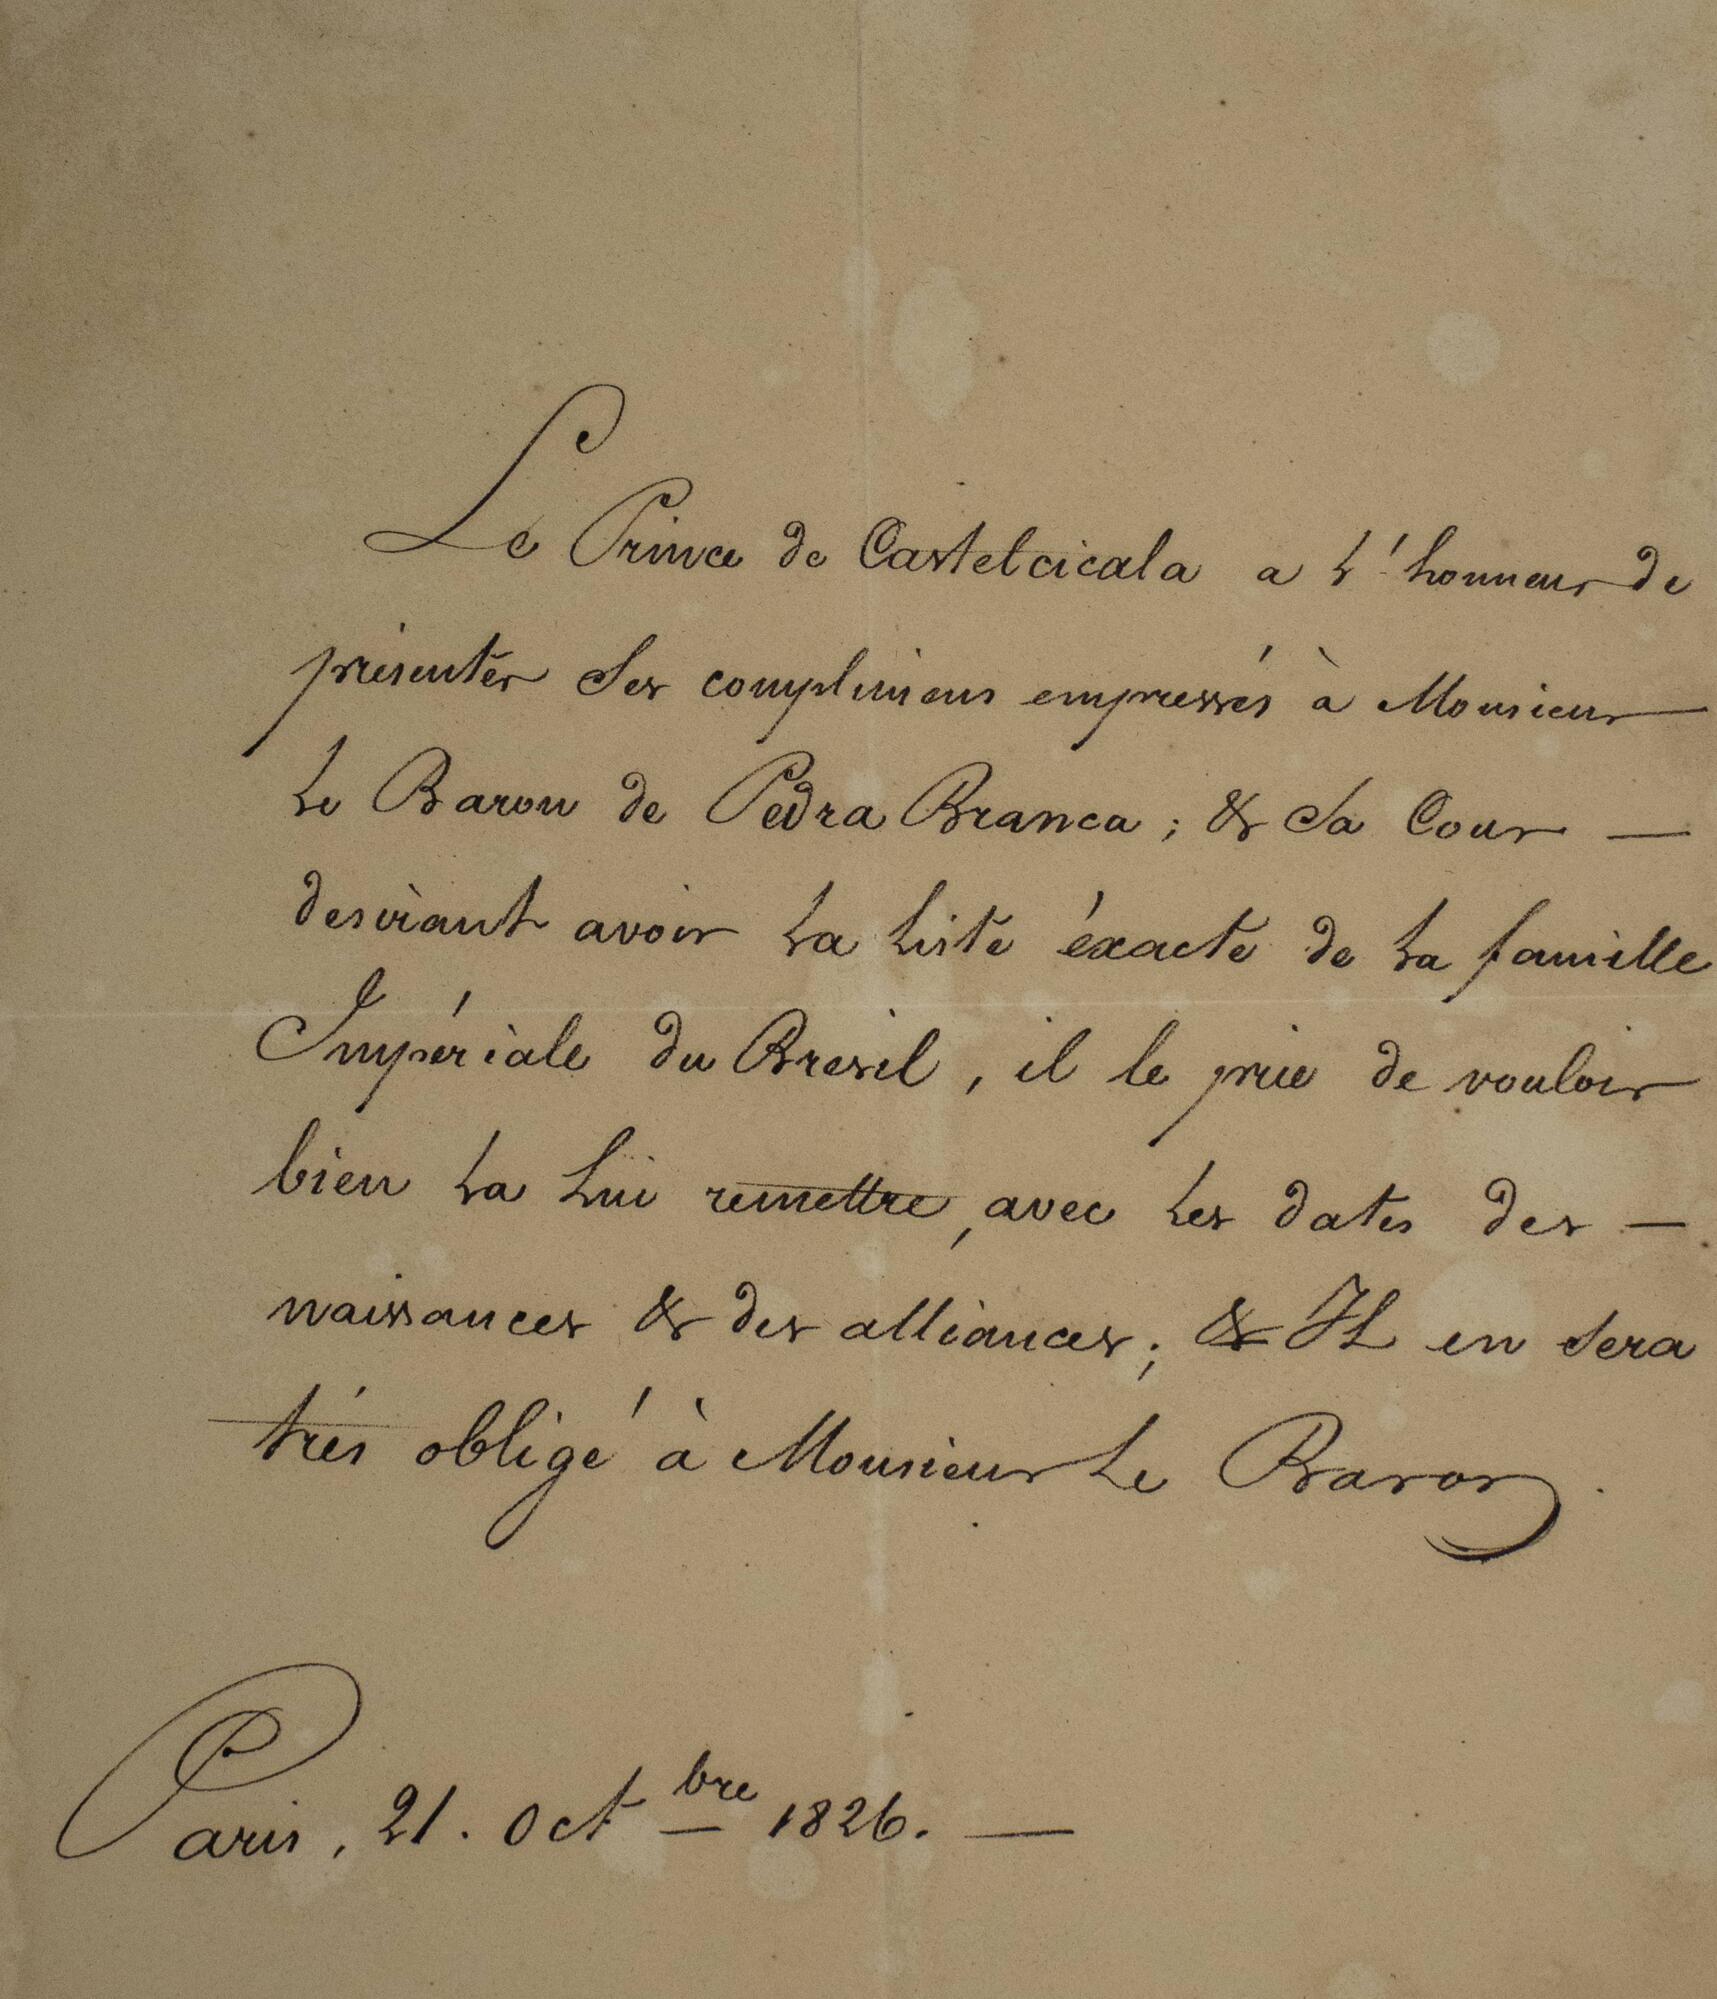 Le Prince de Castelcicala a l'honneur de
présenter Ses complimens empressés à Monsieur
le Baron de Pedra Branca ; & Sa Cour —
desirant avoir la liste éxacte de la famille
Impériale du Bresil , il le prie de vouloir
bien la lui remettre, avec les dates des —
naissances & des alliances ; & Il en sera
trés obligé à Monsieur le Baron .
Paris , 21. Oct bre 1826. —